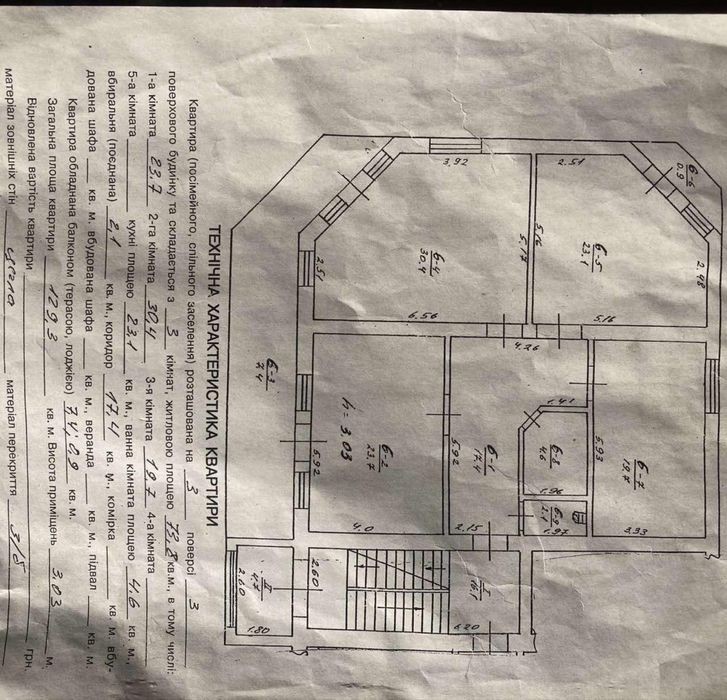 ТЕХНІЧНА ХАРАКТЕРИСТИКА КВАРТИРИ
Квартира (посімейного, спільного заселення) розташована на 3 поверсі 3
поверхового будинку та складається з 3 кімнат, житловою площею 73,8 кв.м., в тому числі:
1-а кімната 23,7 2-га кімната 30,4 3-я кімната 19,7 4-а кімната
5-а кімната кухні площею 23,1 кв. м., ванна кімната площею 4,6 кв. м.,
вбиральня (поєднана) 2,1 кв. м., коридор 17,4 кв. м., комірка кв. м. вбу-
дована шафа кв. м. вбудована шафа кв. м., веранда кв. м., підвал кв. м.
Квартира обладнана балконом (терасою, лоджією) 7,4; 0,9 кв. м.
Загальна площа квартири 129,3 кв. м. Висота приміщень 3,03 м.
Відновлена вартість квартири грн.
матеріал зовнішніх стін цегла матеріал перекриття з/б
6-6
0.9
2.51
3.92
5.16
5.17
6-5
23,1
2.48
6-4
30,4
2.51
6.56
5.16
4.26
6-3
7.4
h = 3.03
6-2
23.7
5.92
4.0
5.92
6-1
17.4
2.15
1.41
6-8
4.6
1.96
6-9
2.1
1.97
5.93
6-7
19.7
3.33
I
16,1
6.20
2.60
II
4.7
2.60
1.80